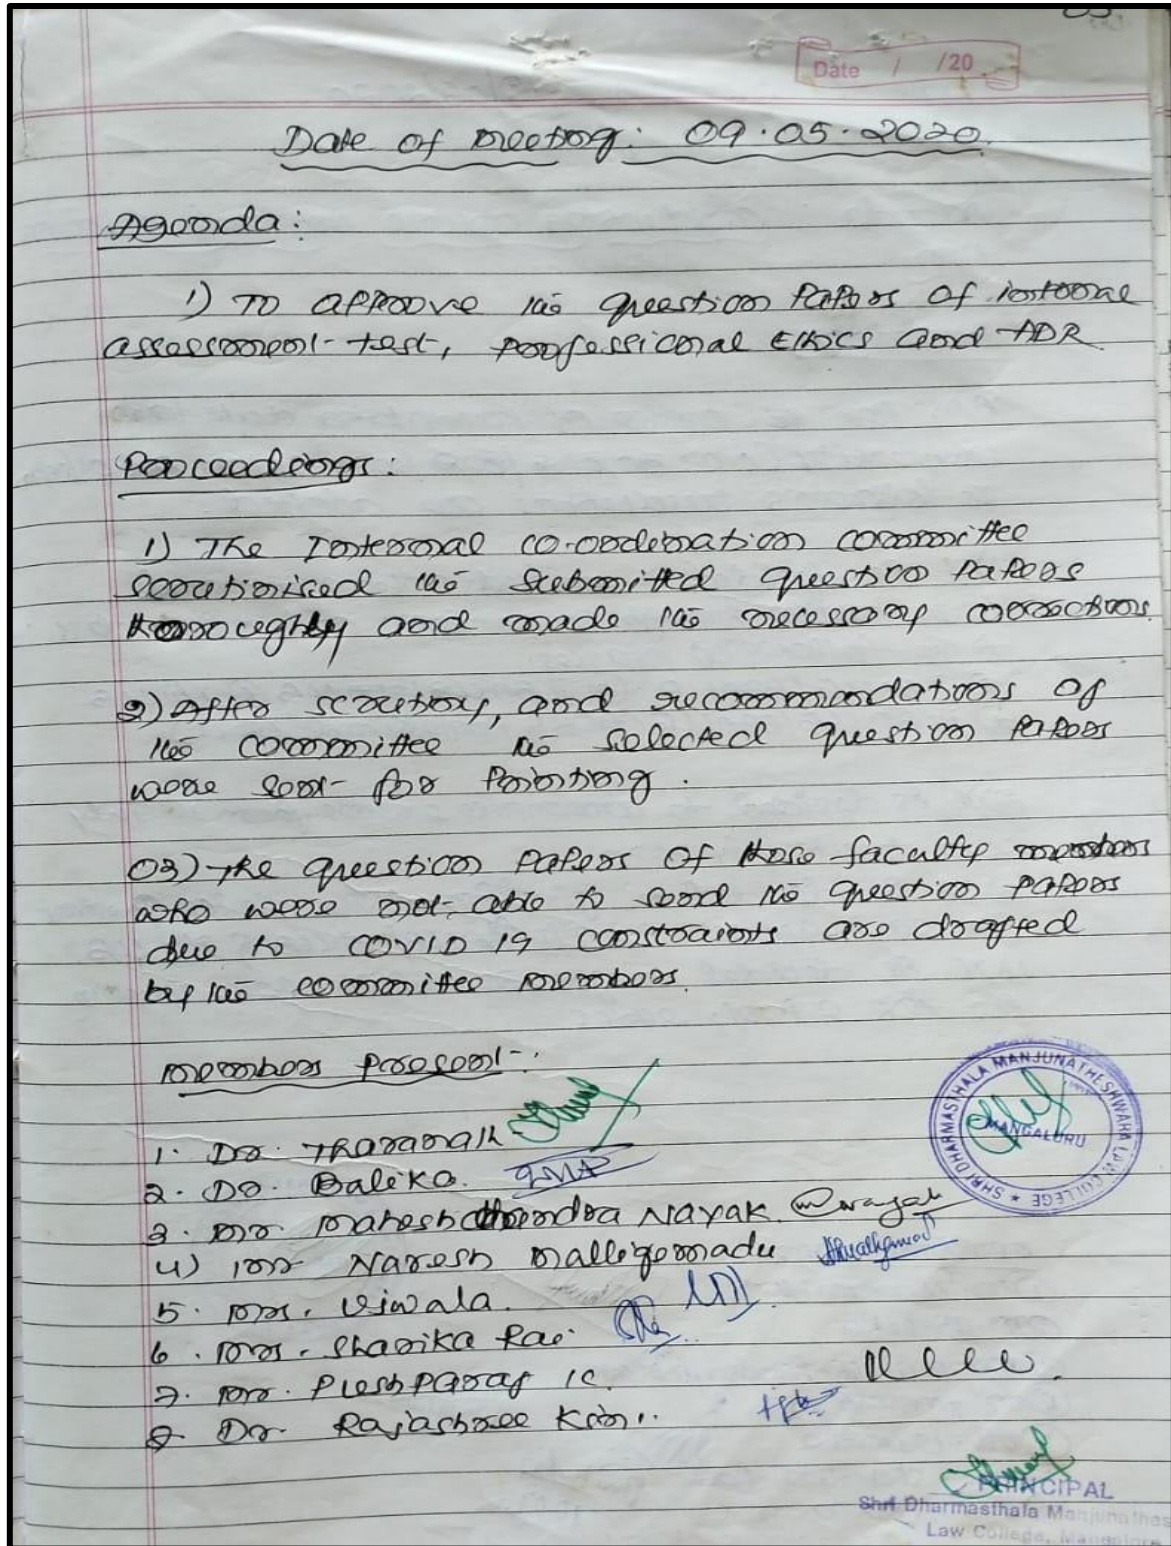 Date / /20
Date of meeting: 09.05.2020.
Agenda:
1) To approve the question papers of internal
assessment test, professional Ethics and ADR
Proceedings:
1) The Internal co-ordination committee
scrutinised the submitted question papers
thoroughly and made the necessary corrections.
2) After scrutiny, and recommendations of
the committee the selected question papers
were sent for printing.
03) The question papers of those faculty members
who were not able to send the question papers
due to COVID 19 constraints are drafted
by the committee members.
members present:
1. Dr. Tharanath
2. Dr. Balika.
3. Mr Mahesh Chandra Nayak.
4) Mr Naresh Malligemadu
5. Mrs. Viwala.
6. Mrs. Sharika Rai.
7. Mr. Pushparaj K.
8 Dr. Rajashree
SHRI DHARMASTHALA MANJUNATHESHWARA LAW COLLEGE
MANGALURU
PRINCIPAL
Shri Dharmasthala Manjunathes
Law College, Mangalore